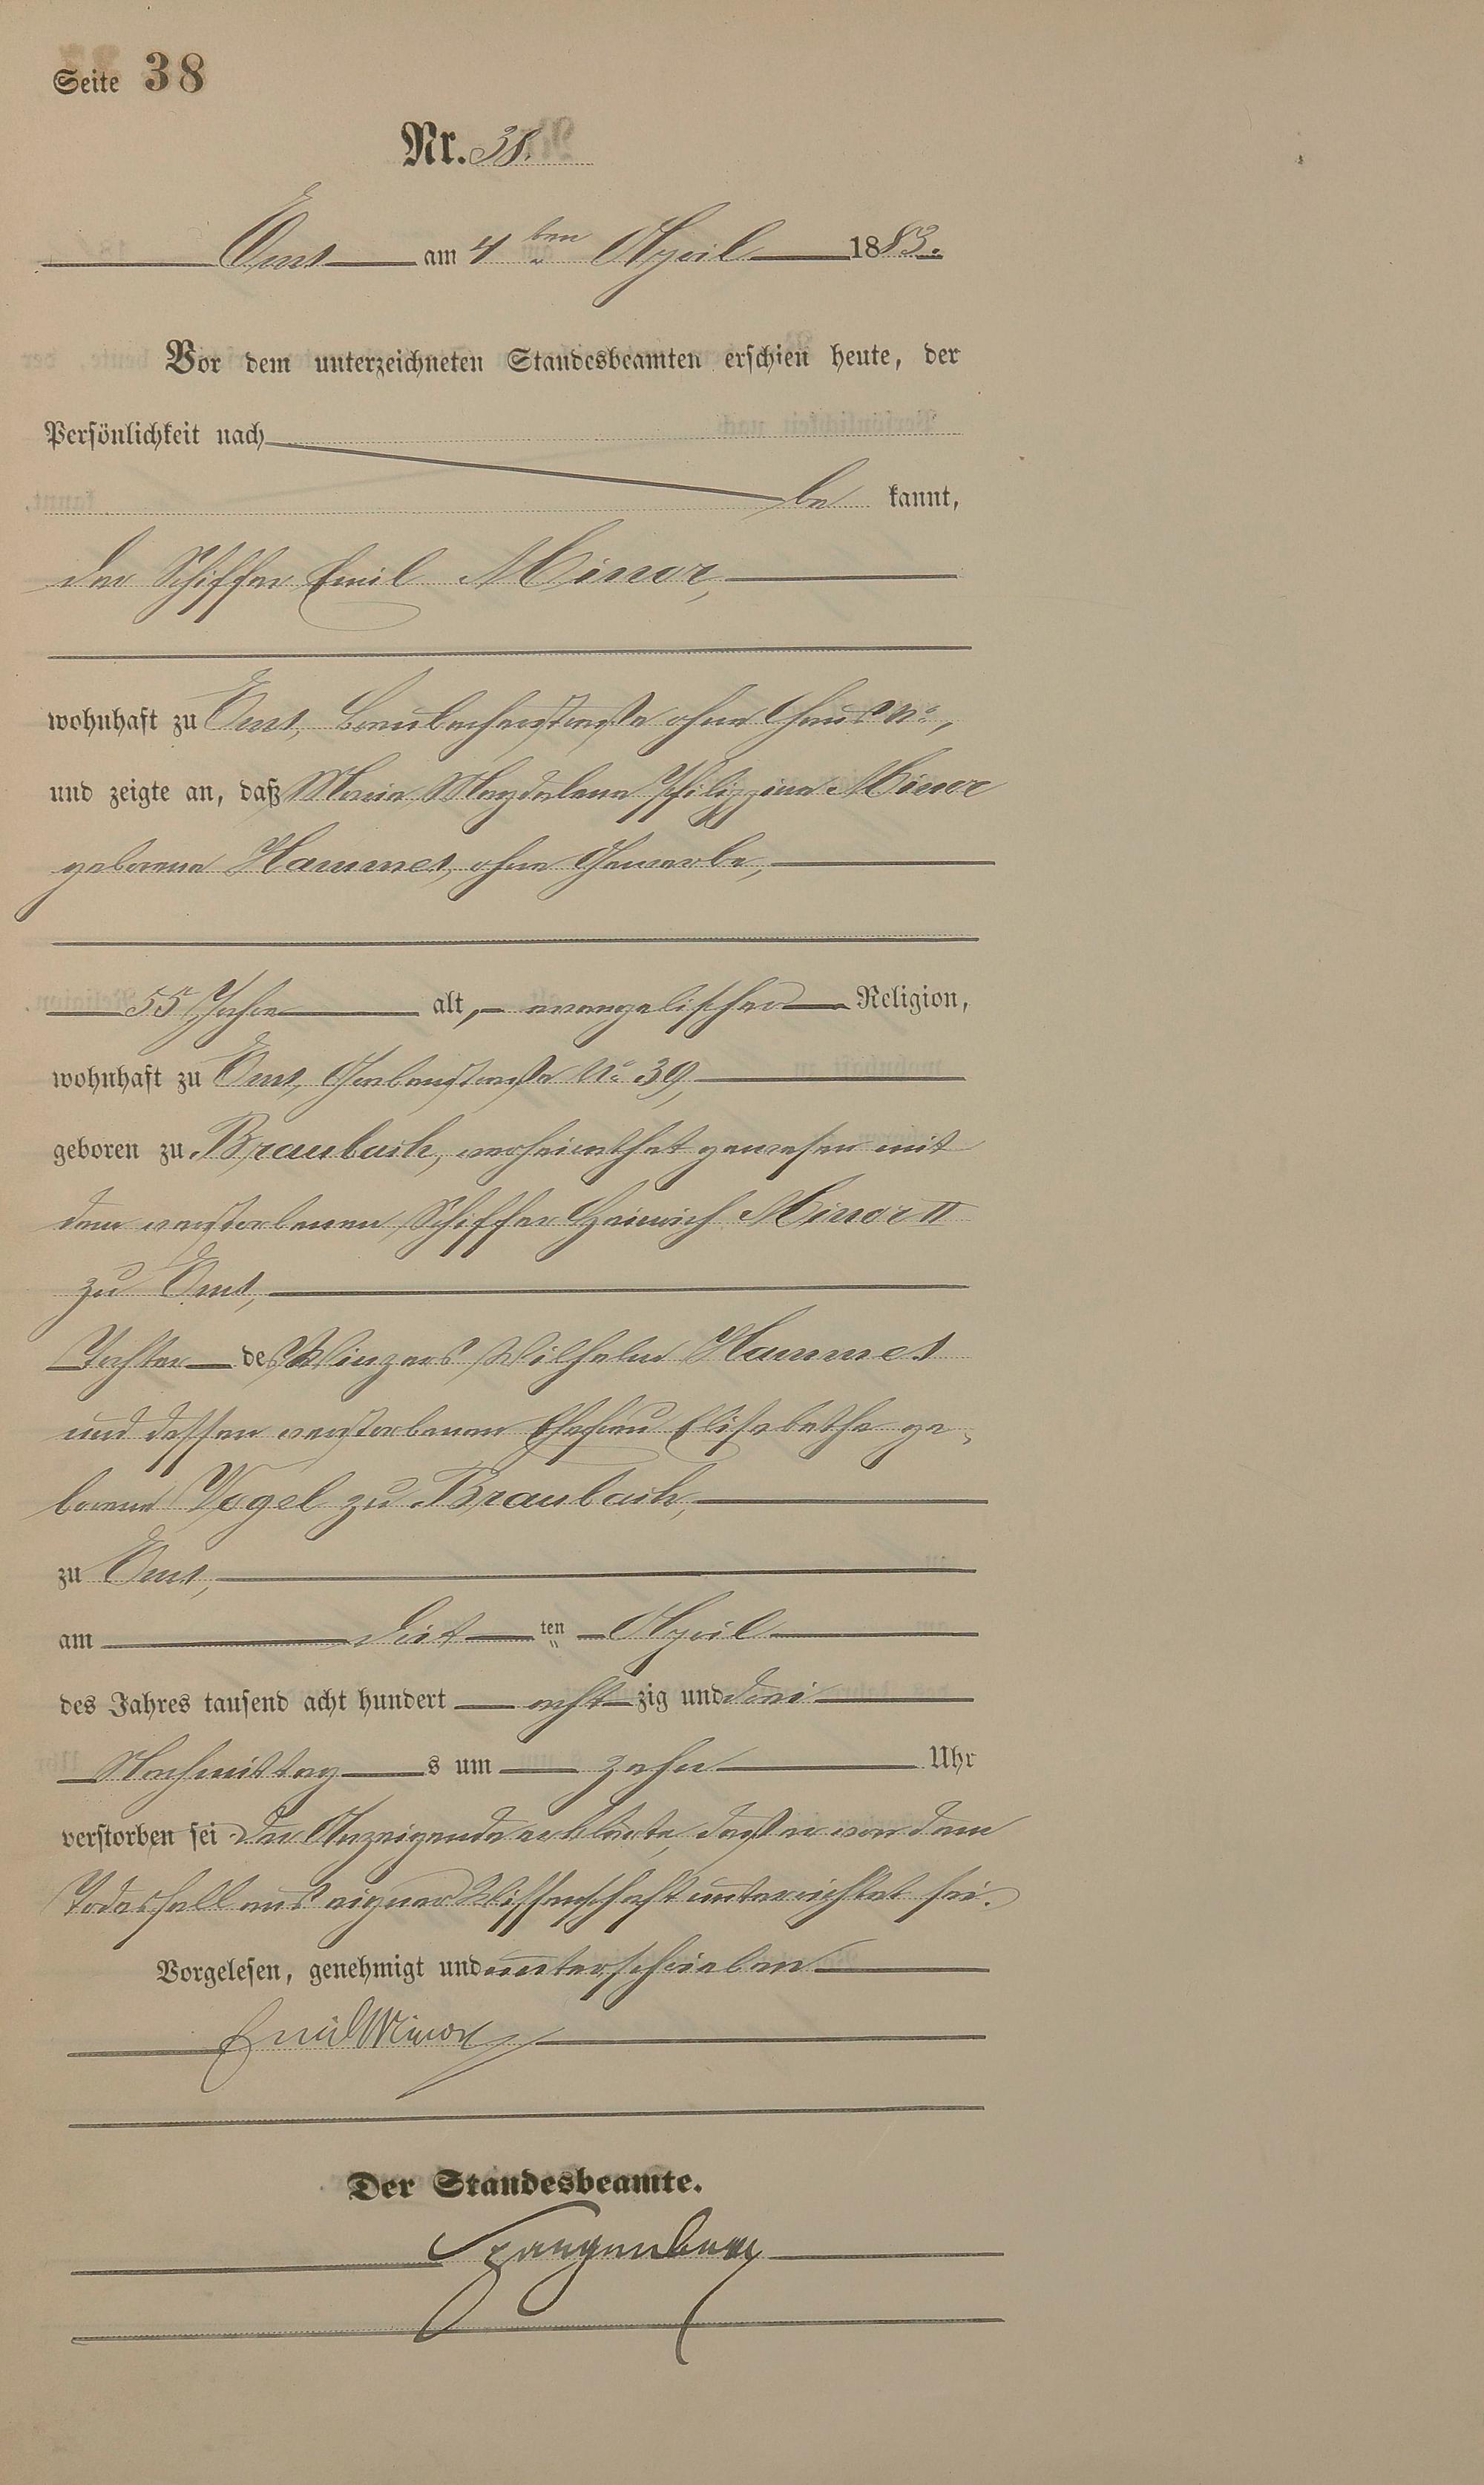 Seite 38
Nr. 38.
Ems am 4ten April 1883.
Vor dem unterzeichneten Standesbeamten erschien heute, der
Persönlichkeit nach
be kannt,
der Schiffer Emil Minor,
wohnhaft zu Ems, Braubacherstraße ohne Haus No,
und zeigte an, daß Maria Magdalena Philippine Minor
geborene Hammes, ohne Gewerbe,
55 Jahre alt, evangelischer Religion,
wohnhaft zu Ems, Grabenstraße No 39,
geboren zu Braubach, verheirathet gewesen mit
dem verstorbenen Schiffer Heinrich Minor II
zu Ems,
Tochter des Winzers Wilhelm Hammes
und dessen verstorbenen Ehefrau Elisabethe ge-
borene Vogel zu Braubach,
zu Ems,
am ten April
des Jahres tausend acht hundert acht zig und drei
Nachmittag s um zehn Uhr
verstorben sei. Der Anzeigende erklärte, daß er von dem
Todesfall aus eigner Wissenschaft unterrichtet sei.
Vorgelesen, genehmigt und unterschrieben
Emil Minor
Der Standesbeamte.
Spangenberg